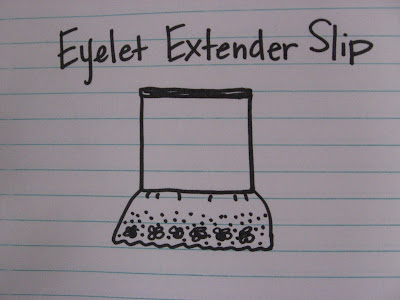 Eyelet Extender Slip